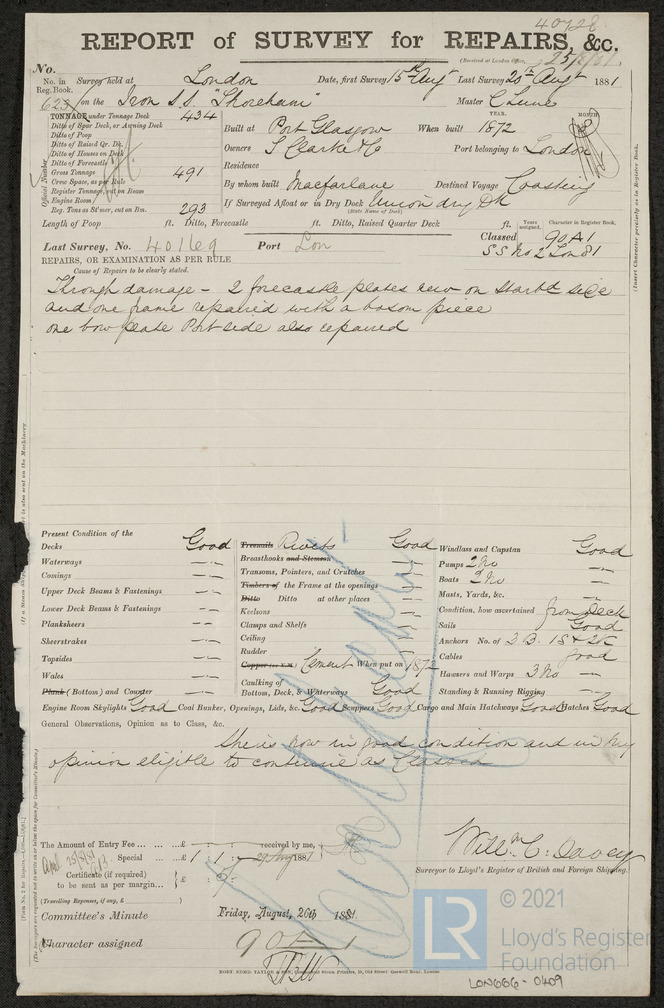 40728
REPORT of SURVEY for REPAIRS, &c.
(Received at London Office, 25/8/81
No.
No. in Reg. Book. Survey held at London Date, first Survey 15th Augt Last Survey 20th Augt 1881
623 on the Iron S.S. "Shoreham" Master C Lune
TONNAGE under Tonnage Deck 434
Ditto of Spar Deck, or Awning Deck
Ditto of Poop
Ditto of Raised Qr. Dk.
Ditto of Houses on Deck
Ditto of Forecastle
Gross Tonnage 491
Crew Space, as per Rule
Register Tonnage, cut on Beam
Engine Room
Reg. Tons as St'mer, cut on Bm. 293
Official Number
YEAR. MONTH
Built at Port Glasgow When built 1872
Owners S Clarke & Co Port belonging to London
Residence
By whom built Macfarlane Destined Voyage Coasting
If Surveyed Afloat or in Dry Dock Union dry Dk
(State Name of Dock)
Length of Poop ft. Ditto, Forecastle ft. Ditto, Raised Quarter Deck ft.
Years assigned. Character in Register Book.
Last Survey, No. 40169 Port Lon Classed 90A1
SS No 2 Lon 81
REPAIRS, OR EXAMINATION AS PER RULE
Cause of Repairs to be clearly stated.
Through damage - 2 forecastle plates new on Starbd side
and one frame repaired with a bosom piece
one bow plate Port side also repaired
(Insert Character precisely as in Register Book.
Present Condition of the
Decks Good
Waterways —
Comings —
Upper Deck Beams & Fastenings —
Lower Deck Beams & Fastenings —
Planksheers —
Sheerstrakes —
Topsides —
Wales —
Plank (Bottom) and Counter —
Treenails Rivets Good
Breasthooks and Stemson —
Transoms, Pointers, and Crutches —
Timbers of the Frame at the openings —
Ditto Ditto at other places —
Keelsons —
Clamps and Shelfs —
Ceiling —
Rudder —
Copper (or Y.M.) Cement When put on 1872
Caulking of
Bottom, Deck, & Waterways Good
Windlass and Capstan Good
Pumps 2 No —
Boats 2 No —
Masts, Yards, &c. —
Condition, how ascertained from Deck
Sails Good
Anchors No. of 3 B. 1 S & 2 K
Cables Good
Hawsers and Warps 3 No —
Standing & Running Rigging —
Engine Room Skylights Good Coal Bunker, Openings, Lids, &c. Good Scuppers Good Cargo and Main Hatchways Good Hatches Good
General Observations, Opinion as to Class, &c.
She is now in good condition and in my
opinion eligible to continue as Classed
The Amount of Entry Fee ... ... ... £ : : received by me,
Special ... £ 1 : 1 : 1881
Certificate (if required)
to be sent as per margin... } £ :
(Travelling Expenses, if any, £ )
Willm C. Davey
Surveyor to Lloyd's Register of British and Foreign Shipping.
Committee's Minute Friday, August, 26th 1881.
Character assigned 90A1
LON666-0409
© 2021
LR
Lloyd's Register
Foundation